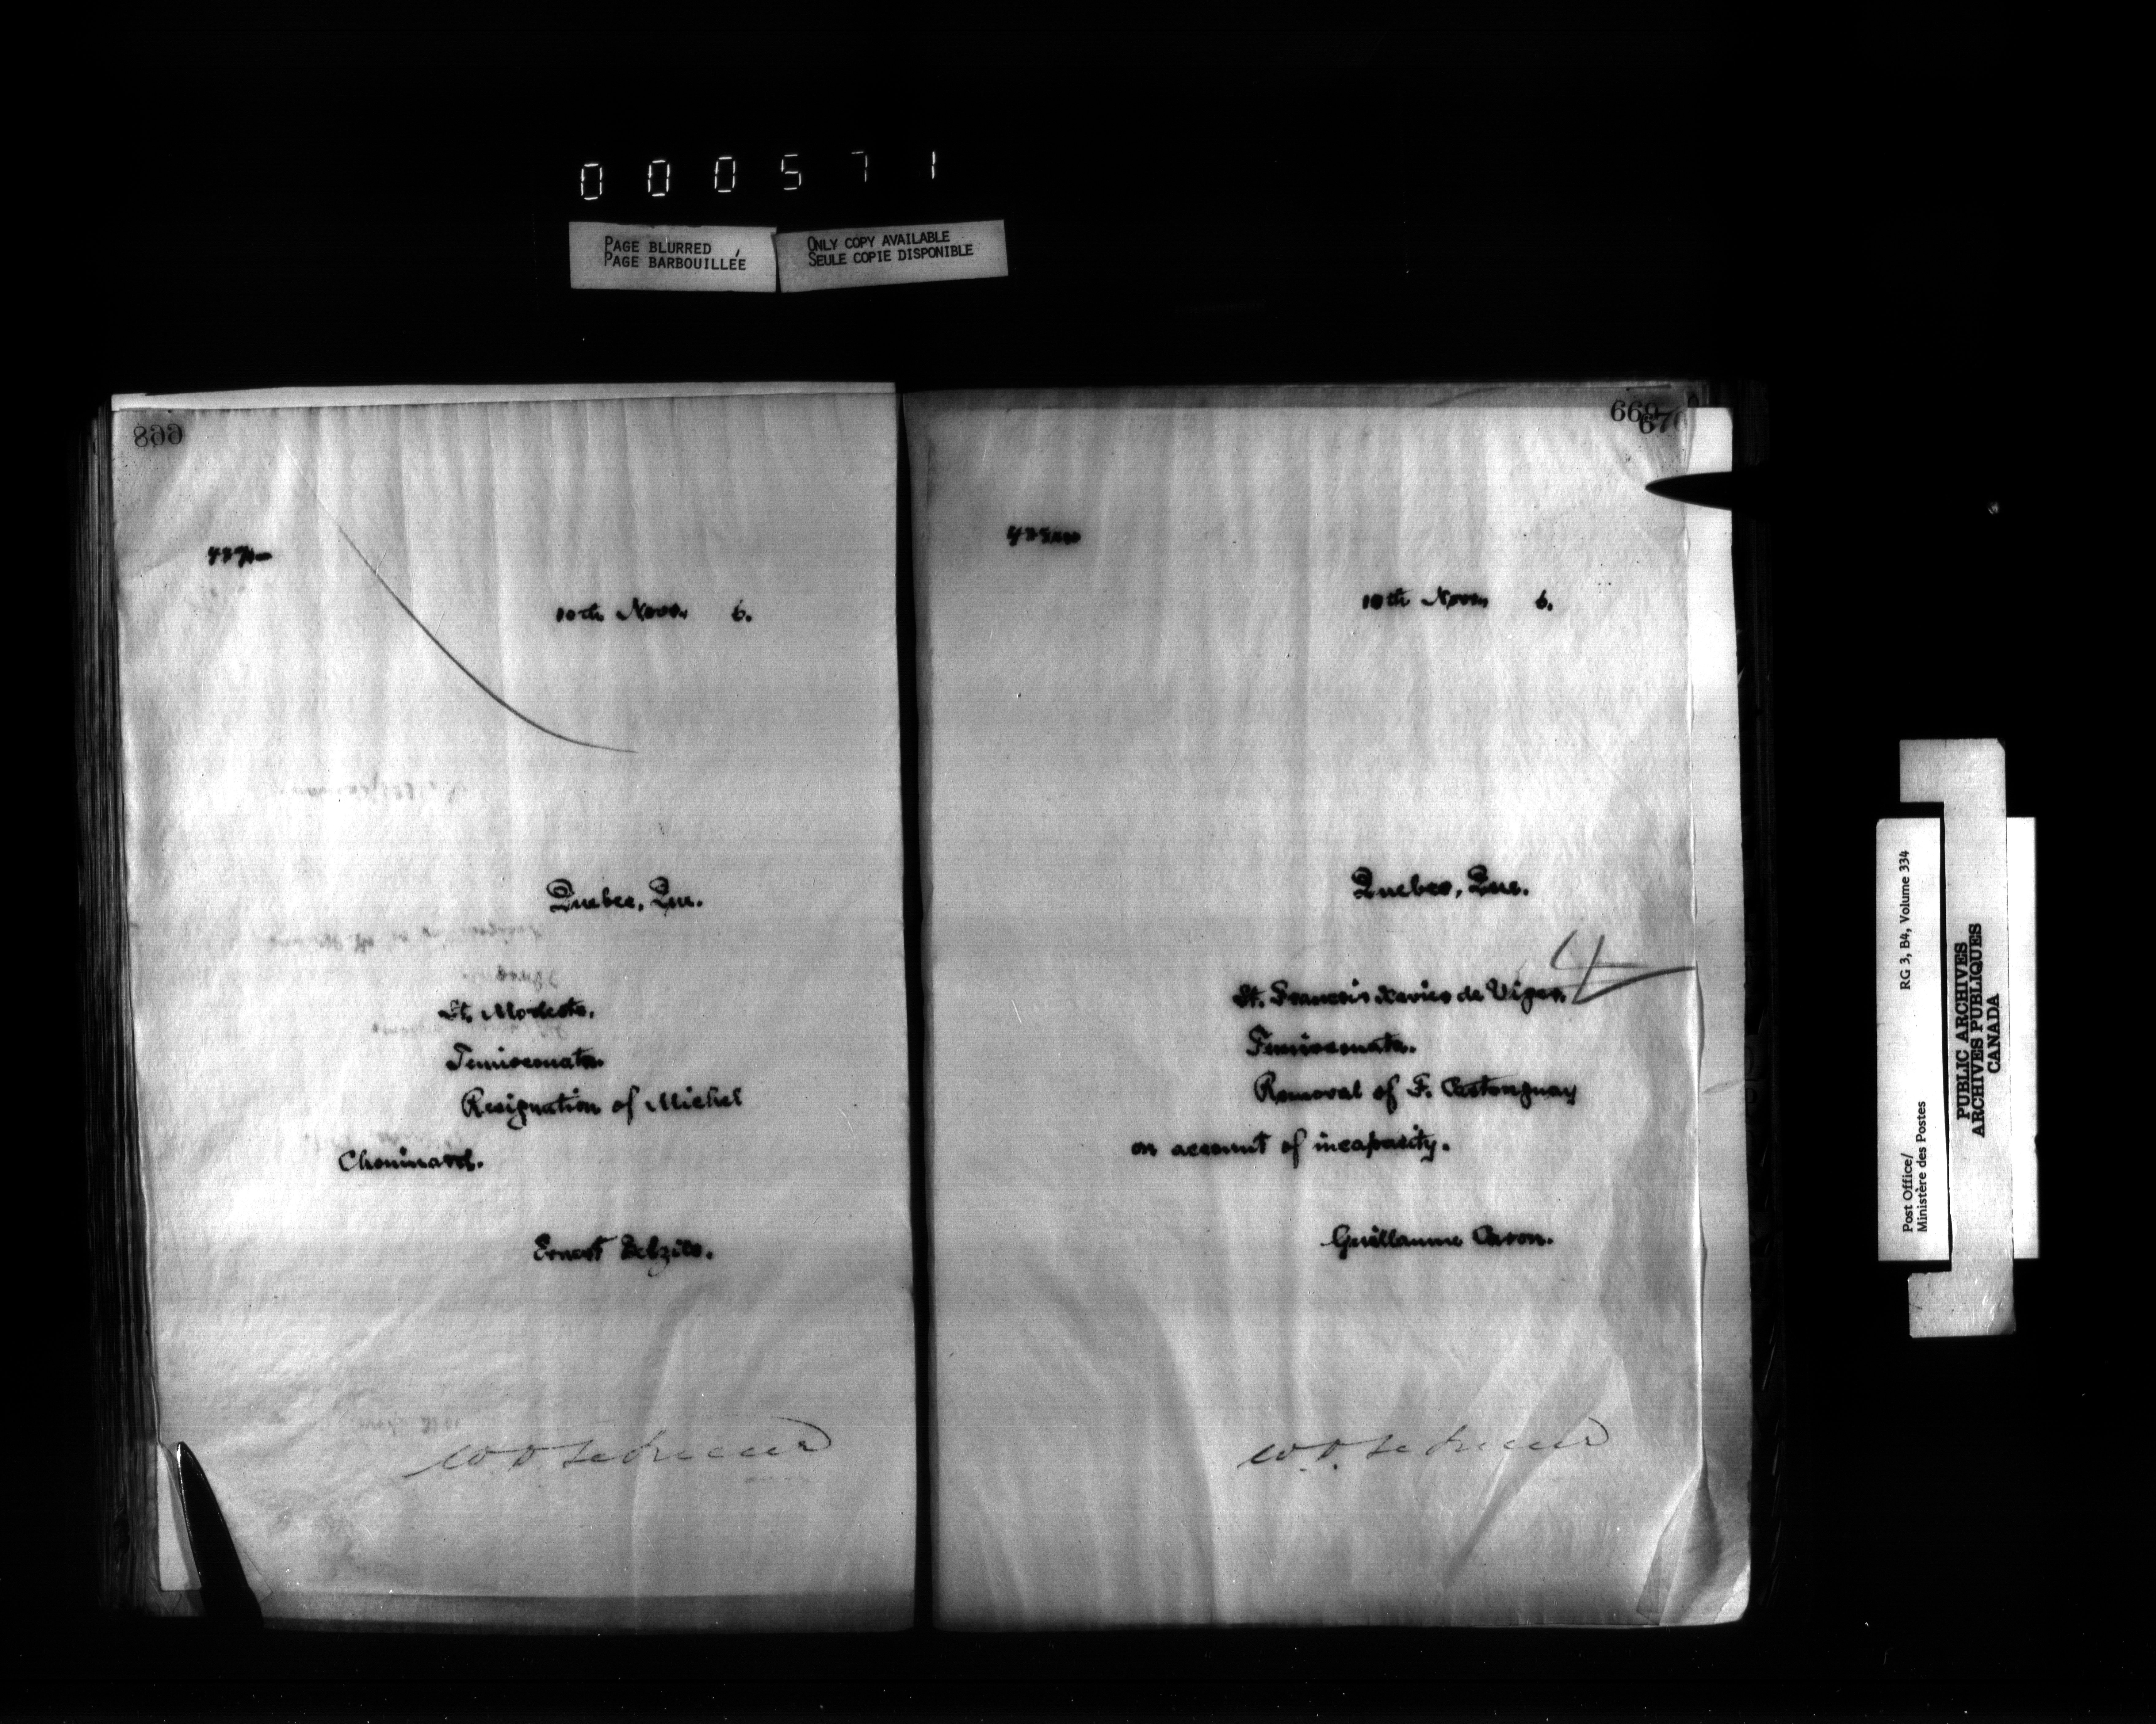 000571
PAGE BLURRED
PAGE BARBOUILLÉE
ONLY COPY AVAILABLE
SEULE COPIE DISPONIBLE
668
10th Novr. 6.
Quebec, Que.
St. Modeste,
Temiscouata.
Resignation of Michel
Chouinard.
Ernest Belzile.
669
670
10th Novr. 6.
Quebec, Que.
St. Francois Xavier de Viger,
Temiscouata.
Removal of F. Castonguay
on account of incapacity.
Guillaume Caron.
Post Office/
Ministère des Postes
RG 3, B4, Volume 334
PUBLIC ARCHIVES
ARCHIVES PUBLIQUES
CANADA